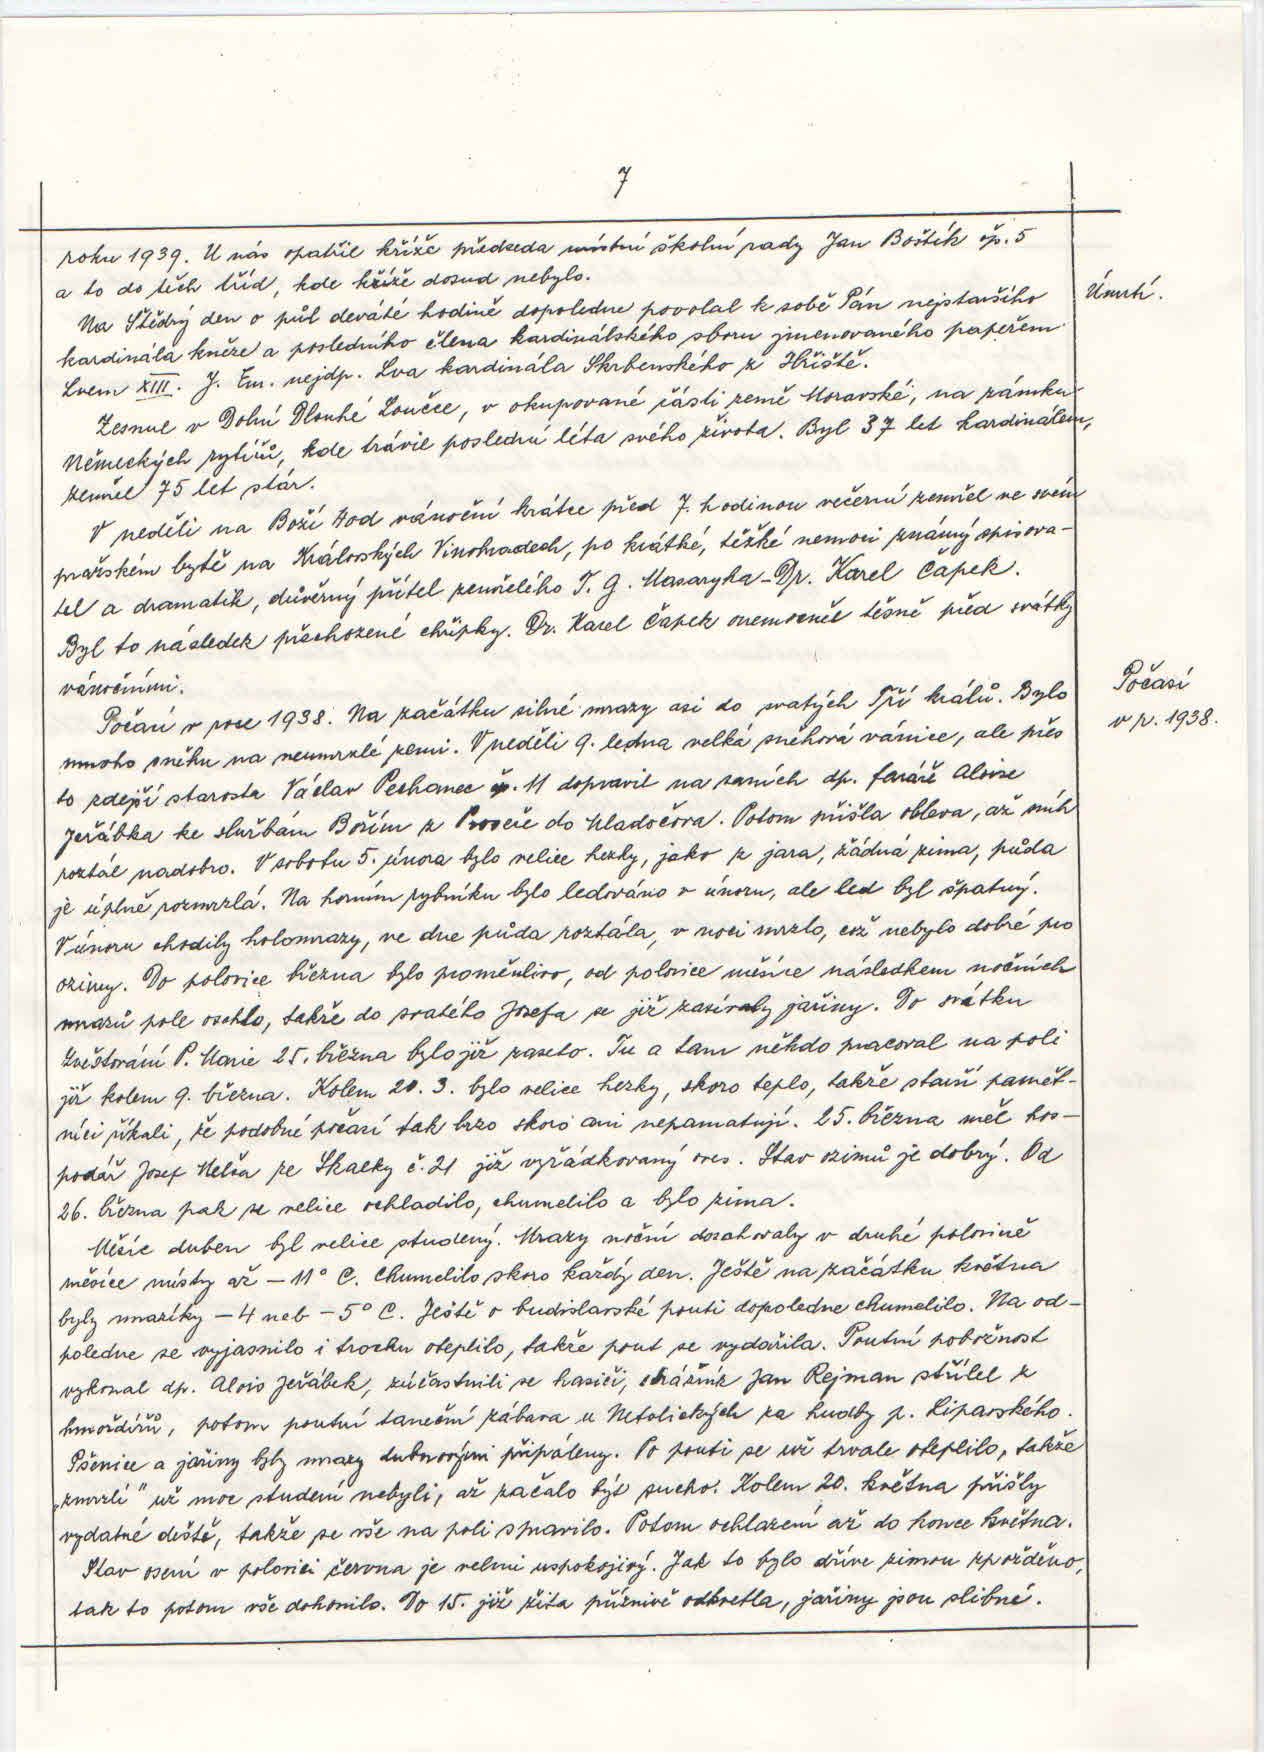 7
roku 1939. U nás opatřil kříže předseda místní školní rady Jan Boštík čp. 5
a to do těch tříd, kde kříže dosud nebylo.
Úmrtí.
Na Štědrý den o půl deváté hodině dopoledne povolal k sobě Pán nejstaršího
kardinála kněze a posledního člena kardinálského sboru jmenovaného papežem
Lvem XIII. J. Em. nejdp. Lva kardinála Skrbenského z Hříště.
Zesnul v Dolní Dlouhé Loučce, v okupované části země Moravské, na zámku
Německých rytířů, kde trávil poslední léta svého života. Byl 37 let kardinálem,
zemřel 75 let stár.
V neděli na Boží Hod vánoční krátce před 7. hodinou večerní zemřel ve svém
pražském bytě na Královských Vinohradech, po krátké, těžké nemoci známý spisova-
tel a dramatik, důvěrný přítel zemřelého T. G. Masaryka - Dr. Karel Čapek.
Byl to následek přechozené chřipky. Dr. Karel Čapek onemocněl těsně před svátky
vánočními.
Počasí
v r. 1938.
Počasí v roce 1938. Na začátku silné mrazy asi do svatých Tří králů. Bylo
mnoho sněhu na neumrzlé zemi. V neděli 9. ledna velká sněhová vánice, ale přes
to zdejší starosta Václav Pechanec čp. 11 dopravil na saních dp. faráře Aloise
Jeřábka ke službám Božím z Proseče do Mladočova. Potom přišla obleva, až sníh
roztál nadobro. V sobotu 5. února bylo velice hezky, jako z jara, žádná zima, půda
je úplně rozmrzlá. Na horním rybníku bylo ledováno v únoru, ale led byl špatný.
V únoru chodily holomrazy, ve dne půda roztála, v noci mrzlo, což nebylo dobré pro
ozimy. Do polovice března bylo proměnlivo, od polovice měsíce následkem nočních
mrazů pole oschlo, takže do svatého Josefa se již zasívaly jařiny. Do svátku
Zvěstování P. Marie 25. března bylo již zaseto. Tu a tam někdo pracoval na poli
již kolem 9. března. Kolem 20. 3. bylo velice hezky, skoro teplo, takže starší pamět-
níci říkali, že podobné počasí tak brzo skoro ani nepamatují. 25. března měl hos-
podář Josef Melša ze Skalky č. 21 již vyřádkovaný oves. Stav ozimů je dobrý. Od
26. března pak se velice ochladilo, chumelilo a bylo zima.
Měsíc duben byl velice studený. Mrazy noční dosahovaly v druhé polovině
měsíce místy až - 11° C. Chumelilo skoro každý den. Ještě na začátku května
byly mrazíky - 4 neb - 5° C. Ještě o budislavské pouti dopoledne chumelilo. Na od-
poledne se vyjasnilo i trochu oteplilo, takže pout se vydařila. Poutní pobožnost
vykonal dp. Alois Jeřábek, zúčastnili se hasiči, strážník Jan Rejman střílel z
hmoždířů, potom poutní taneční zábava u Netolických za hudby p. Liparského.
Pšenice a jařiny byly mrazy dubnovými připáleny. Po pouti se už trvale oteplilo, takže
„zmrzlí" už moc studení nebyli, až začalo být sucho. Kolem 20. května přišly
vydatné deště, takže se vše na poli spravilo. Potom ochlazení až do konce května.
Stav osení v polovici června je velmi uspokojivý. Jak to bylo dříve zimou zpožděno,
tak to potom vše dohonilo. Do 15. již žita příznivě odkvetla, jařiny jsou slibné.